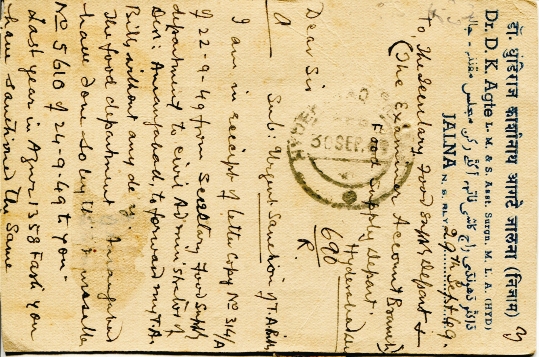 डॉ. धुंडिराज काशीनाथ आगटे जालना (निज़ाम)
Dr. D. K. Agte L. M. & S. Asst. Surgn. M. L. A. (HYD)
JALNA N. S. RLY.
29th Sept 49.
To, The Secretary Food supply depart &
(The Examiner Account Branch)
Food supply depart.
Hyderabad
690
30 SEP
Dear Sir
Sub: Urgent Sanction of T.A. Bills
I am in receipt of letter Copy No 314/A
of 22-9-49 from Secretary food supply
department to Civil Administrator of
Dist: Aurangabad, to forward my T.A.
Bills without any delay.
The food department Aurangabad
have done so by their
No 5610 of 24-9-49 to you -
Last year in Azur 1358 Fasli you
have sanctioned the same